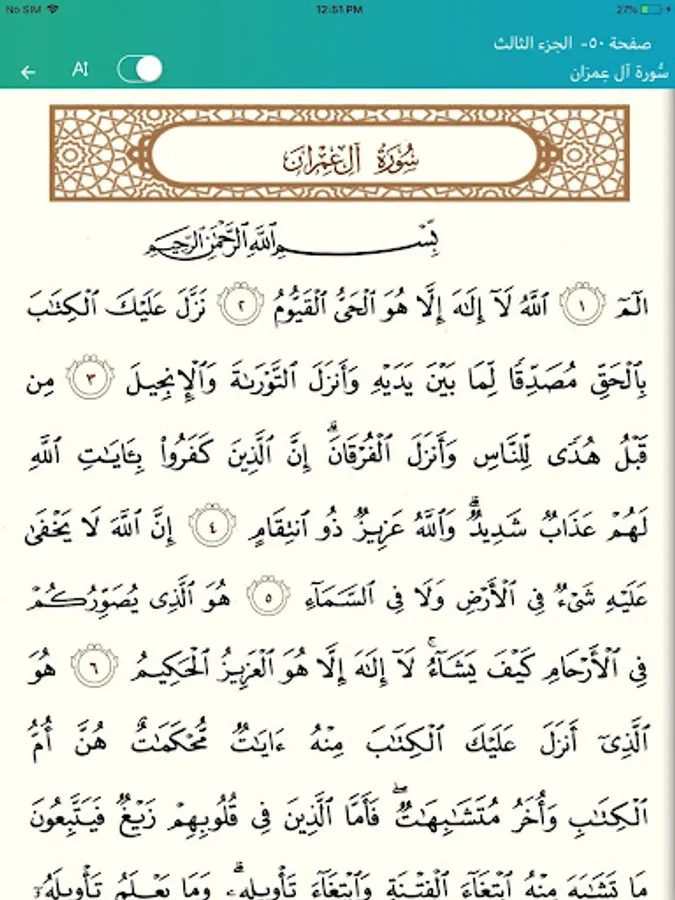 No SIM 12:51 PM 27%
صفحة ٥٠- الجزء الثالث
سُورة آل عِمرَان
AI
سُورَةُ آلِ عِمْرَانَ
بِسْمِ ٱللَّهِ ٱلرَّحْمَٰنِ ٱلرَّحِيمِ
الٓمٓ ١ ٱللَّهُ لَآ إِلَٰهَ إِلَّا هُوَ ٱلْحَىُّ ٱلْقَيُّومُ ٢ نَزَّلَ عَلَيْكَ ٱلْكِتَٰبَ
بِٱلْحَقِّ مُصَدِّقًا لِّمَا بَيْنَ يَدَيْهِ وَأَنزَلَ ٱلتَّوْرَىٰةَ وَٱلْإِنجِيلَ ٣ مِن
قَبْلُ هُدًى لِّلنَّاسِ وَأَنزَلَ ٱلْفُرْقَانَۗ إِنَّ ٱلَّذِينَ كَفَرُوا۟ بِـَٔايَٰتِ ٱللَّهِ
لَهُمْ عَذَابٌ شَدِيدٌۗ وَٱللَّهُ عَزِيزٌ ذُو ٱنتِقَامٍ ٤ إِنَّ ٱللَّهَ لَا يَخْفَىٰ
عَلَيْهِ شَىْءٌ فِى ٱلْأَرْضِ وَلَا فِى ٱلسَّمَآءِ ٥ هُوَ ٱلَّذِى يُصَوِّرُكُمْ
فِى ٱلْأَرْحَامِ كَيْفَ يَشَآءُۚ لَآ إِلَٰهَ إِلَّا هُوَ ٱلْعَزِيزُ ٱلْحَكِيمُ ٦ هُوَ
ٱلَّذِىٓ أَنزَلَ عَلَيْكَ ٱلْكِتَٰبَ مِنْهُ ءَايَٰتٌ مُّحْكَمَٰتٌ هُنَّ أُمُّ
ٱلْكِتَٰبِ وَأُخَرُ مُتَشَٰبِهَٰتٌۖ فَأَمَّا ٱلَّذِينَ فِى قُلُوبِهِمْ زَيْغٌ فَيَتَّبِعُونَ
مَا تَشَٰبَهَ مِنْهُ ٱبْتِغَآءَ ٱلْفِتْنَةِ وَٱبْتِغَآءَ تَأْوِيلِهِۦۗ وَمَا يَعْلَمُ تَأْوِيلَهُۥٓ